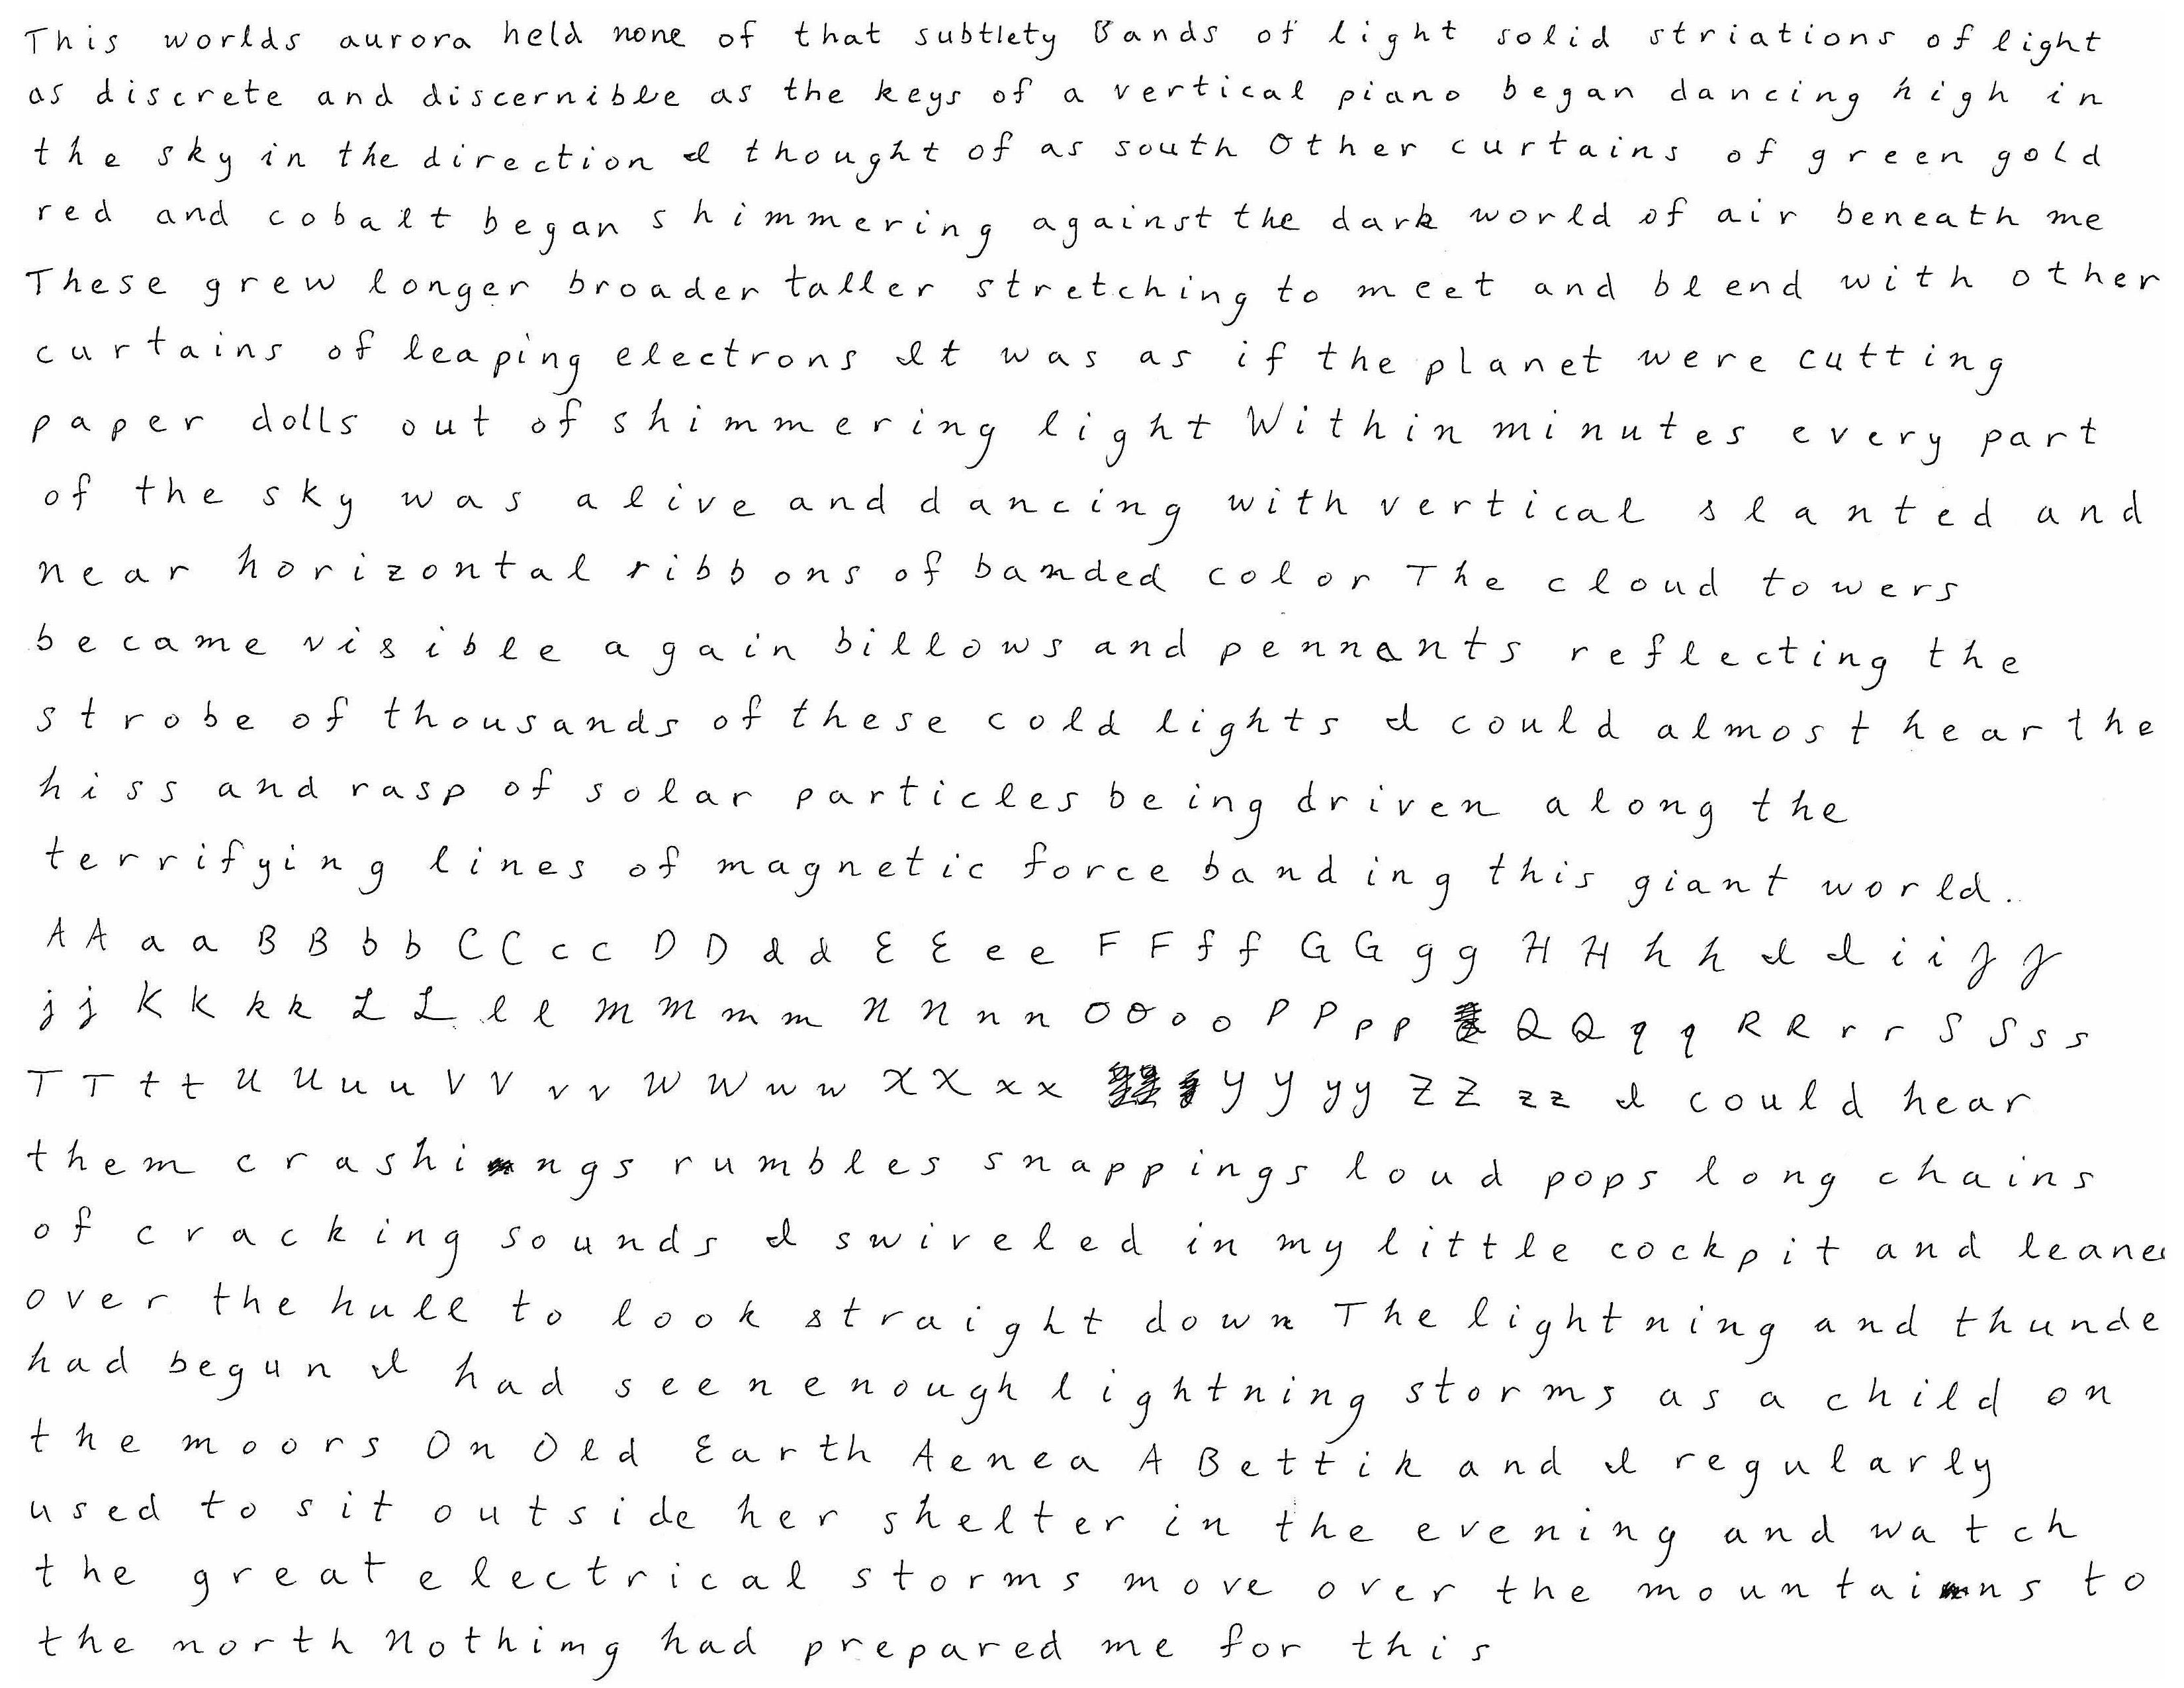 This worlds aurora held none of that subtlety Bands of light solid striations of light
as discrete and discernible as the keys of a vertical piano began dancing high in
the sky in the direction I thought of as south Other curtains of green gold
red and cobalt began shimmering against the dark world of air beneath me
These grew longer broader taller stretching to meet and blend with other
curtains of leaping electrons It was as if the planet were cutting
paper dolls out of shimmering light Within minutes every part
of the sky was alive and dancing with vertical slanted and
near horizontal ribbons of banded color The cloud towers
became visible again billows and pennants reflecting the
strobe of thousands of these cold lights I could almost hear the
hiss and rasp of solar particles being driven along the
terrifying lines of magnetic force banding this giant world.
A A a a B B b b C C c c D D d d E E e e F F f f G G g g H H h h I I i i J J
j j K K k k L L l l M M m m N N n n O O o o P P p p Q Q q q R R r r S S s s
T T t t U U u u V V v v W W w w X X x x Y Y y y Z Z z z I could hear
them crashings rumbles snappings loud pops long chains
of cracking sounds I swiveled in my little cockpit and leane
over the hull to look straight down The lightning and thunde
had begun I had seen enough lightning storms as a child on
the moors On Old Earth Aenea A Bettik and I regularly
used to sit outside her shelter in the evening and watch
the great electrical storms move over the mountains to
the north Nothimg had prepared me for this